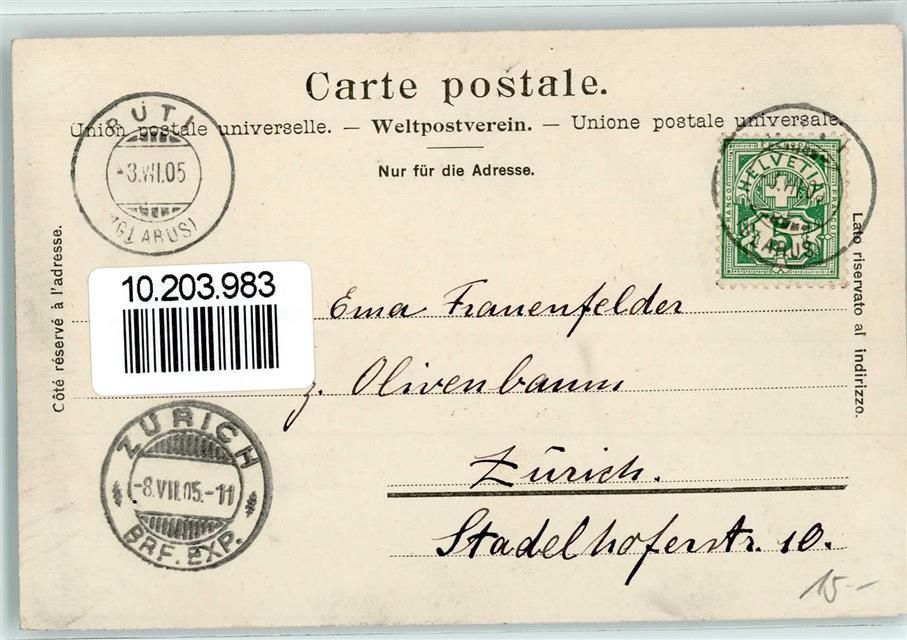 Carte postale.
Union postale universelle. — Weltpostverein. — Unione postale universale.
Nur für die Adresse.
RÜTI
-3.VII.05
(GLARUS)
HELVETIA
FRANCO
FRANCO
5
(GLARUS)
Côté réservé à l'adresse.
Lato riservato al indirizzo.
10.203.983
Ema Frauenfelder
z. Olivenbaum
Zürich.
Stadelhoferstr. 10.
ZÜRICH
-8.VII.05.-11
BRF. EXP.
15.-